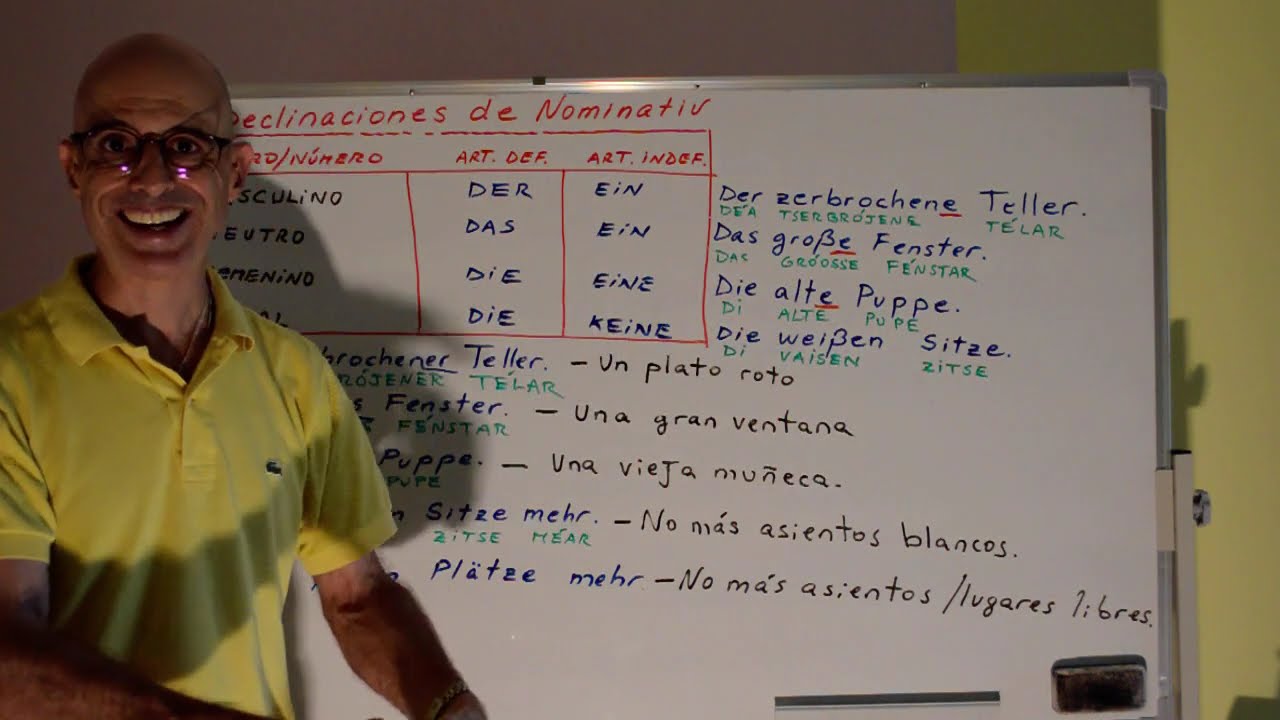 Declinaciones de Nominativ
RO/NÚMERO ART. DEF. ART. INDEF.
SCULINO DER EIN
EUTRO DAS EIN
EMENINO DIE EINE
AL DIE KEINE
Der zerbrochene Teller.
DÉA TSERBRÓJENE TÉLAR
Das große Fenster.
DAS GRÓOSSE FÉNSTAR
Die alte Puppe.
DI ALTE PUPE
Die weißen Sitze.
DI VAISEN ZITSE
brochener Teller. – Un plato roto
RÓJENER TÉLAR
s Fenster. – Una gran ventana
S FÉNSTAR
Puppe. – Una vieja muñeca.
PUPE
n Sitze mehr. – No más asientos blancos.
ZITSE MÉAR
n Plätze mehr – No más asientos /lugares libres.